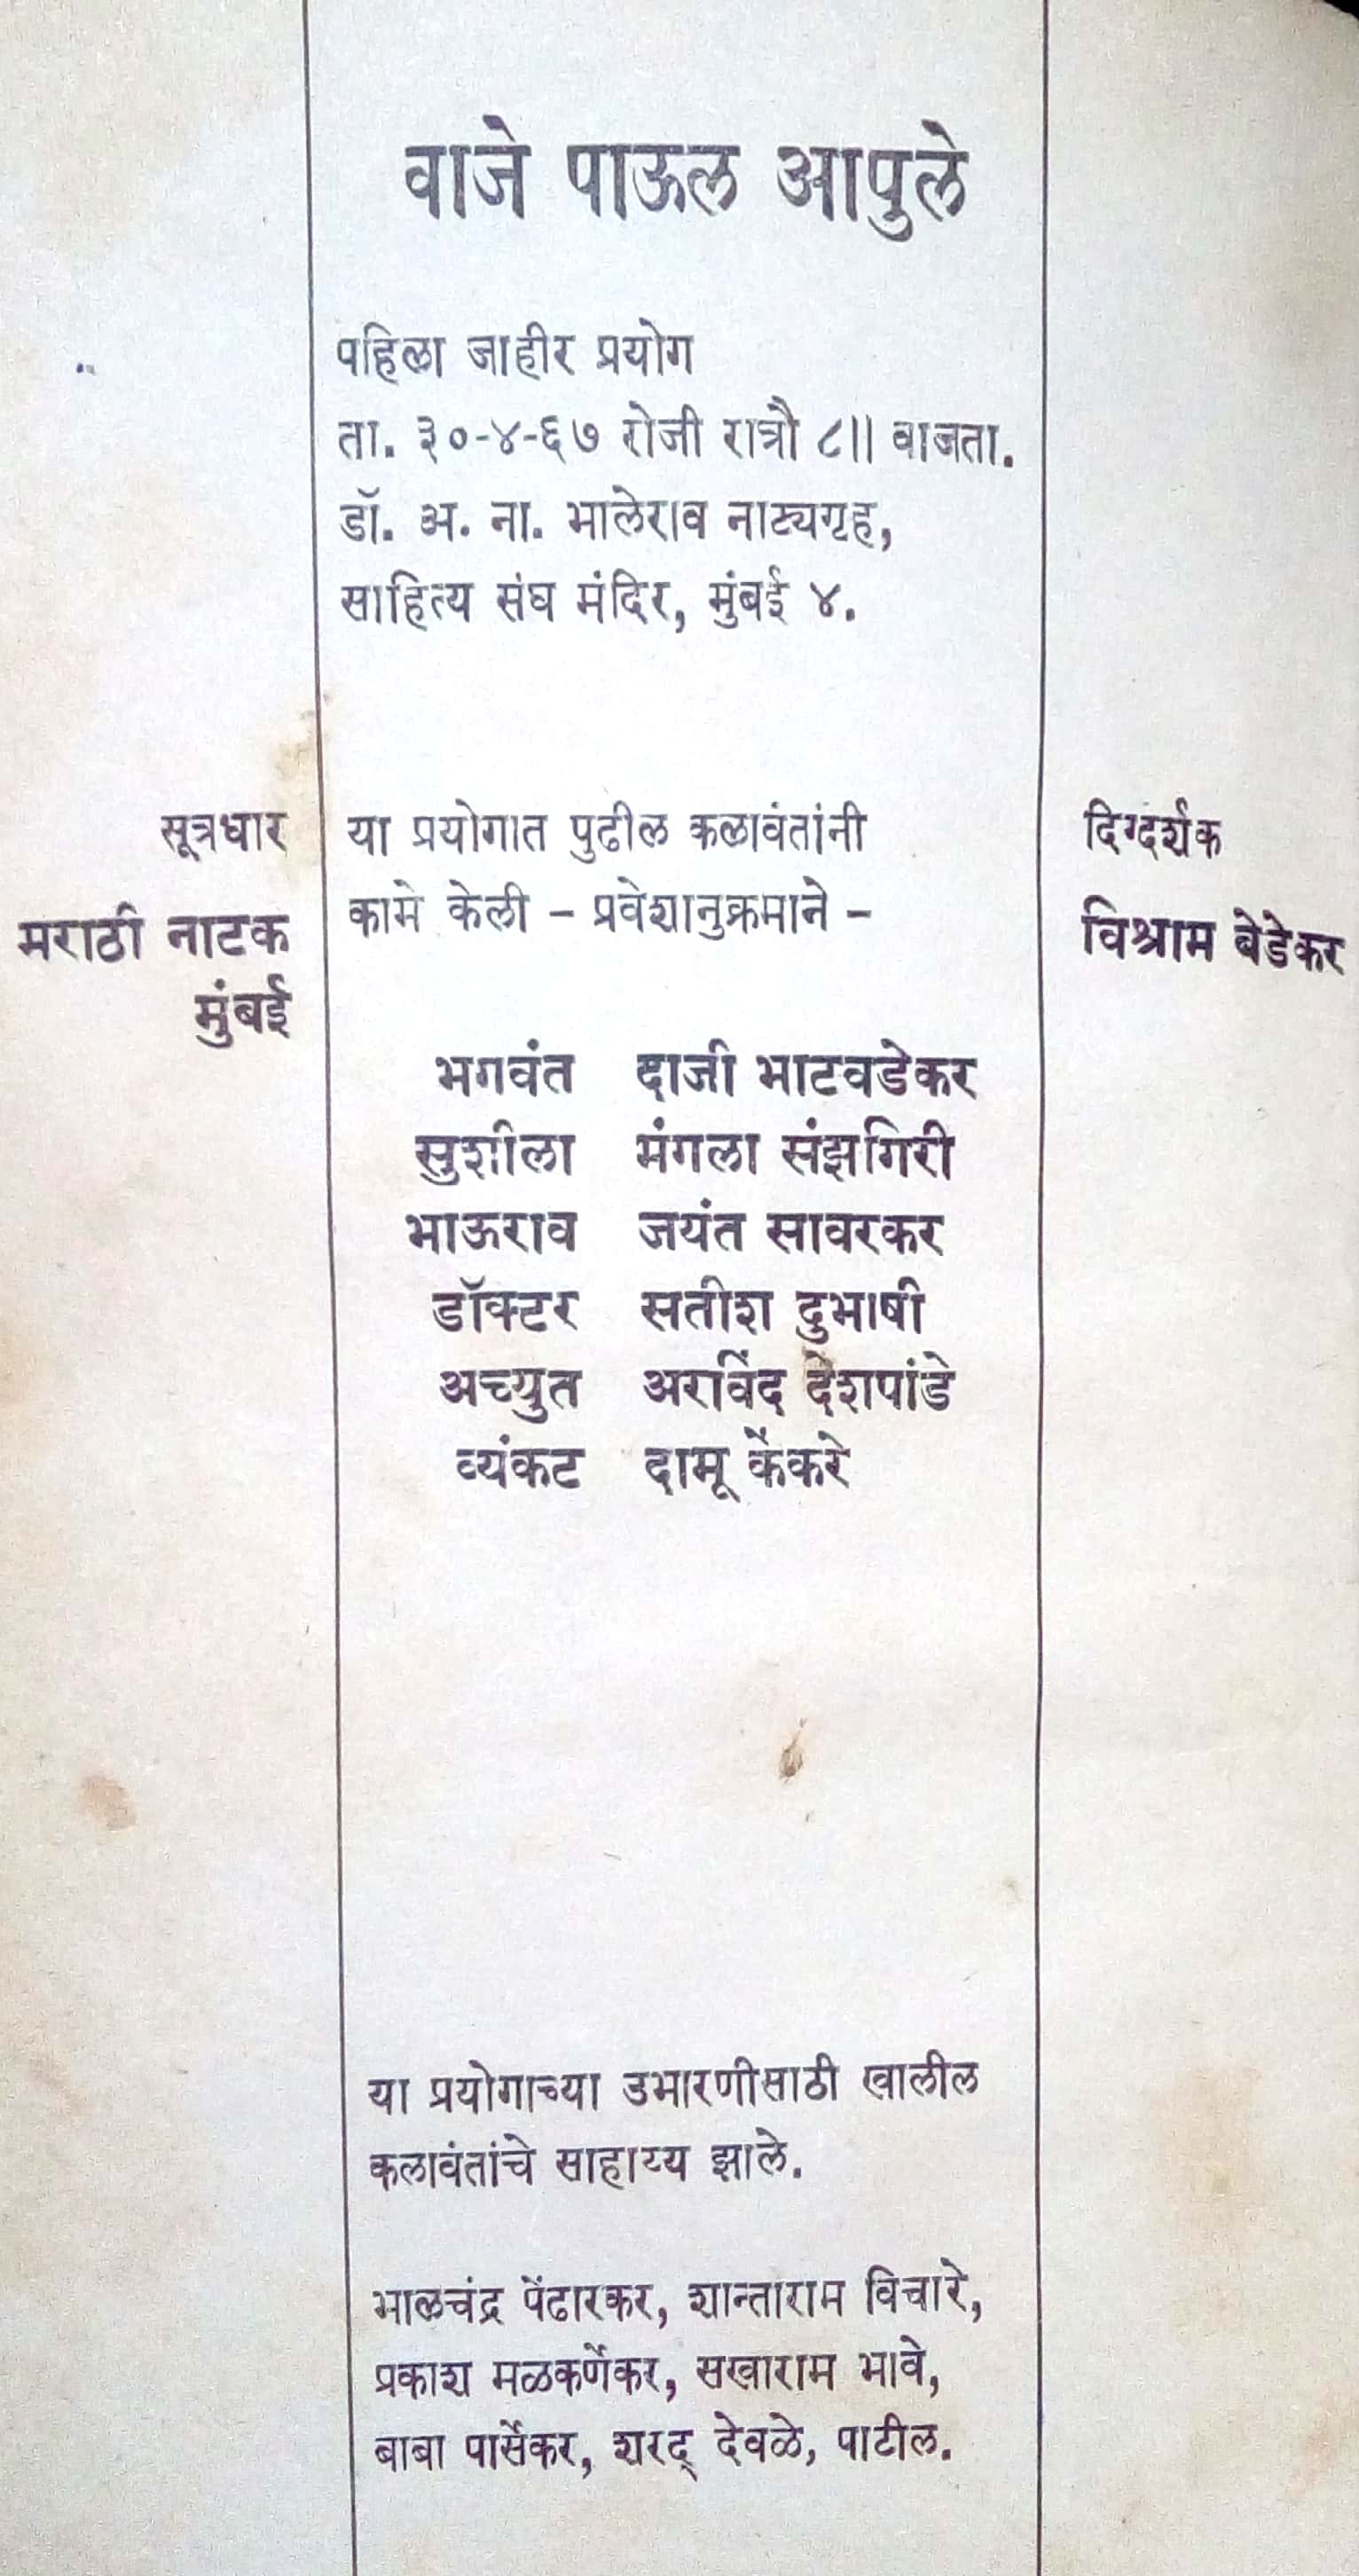 वाजे पाऊल आपुले
पहिला जाहीर प्रयोग
ता. ३०-४-६७ रोजी रात्रौ ८॥ वाजता.
डॉ. अ. ना. भालेराव नाट्यगृह,
साहित्य संघ मंदिर, मुंबई ४.
सूत्रधार
मराठी नाटक
मुंबई
या प्रयोगात पुढील कलावंतांनी
कामे केली – प्रवेशानुक्रमाने –
दिग्दर्शक
विश्राम बेडेकर
भगवंत दाजी भाटवडेकर
सुशीला मंगला संझगिरी
भाऊराव जयंत सावरकर
डॉक्टर सतीश दुभाषी
अच्युत अरविंद देशपांडे
व्यंकट दामू केंकरे
या प्रयोगाच्या उभारणीसाठी खालील
कलावंतांचे साहाय्य झाले.
भालचंद्र पेंढारकर, शान्ताराम विचारे,
प्रकाश मळकर्णेकर, सखाराम भावे,
बाबा पार्सेकर, शरद् देवळे, पाटील.